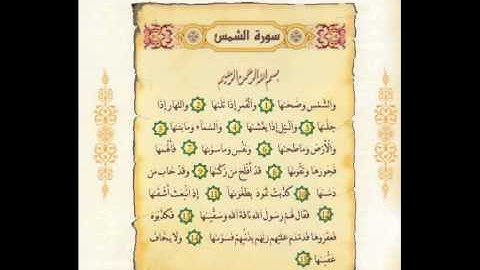 سورة الشمس
بسم الله الرحمن الرحيم
والشمس وضحىها ١ والقمر إذا تلىها ٢ والنهار إذا
جلىها ٣ واليل إذا يغشىها ٤ والسماء وما بنىها ٥
والأرض وما طحىها ٦ ونفس وما سوىها ٧ فألهمها
فجورها وتقوىها ٨ قد أفلح من زكىها ٩ وقد خاب من
دسىها ١٠ كذبت ثمود بطغوىها ١١ إذ انبعث أشقىها
١٢ فقال لهم رسول الله ناقة الله وسقيىها ١٣ فكذبوه
فعقروها فدمدم عليهم ربهم بذنبهم فسوىها ١٤ ولا يخاف
عقبىها ١٥